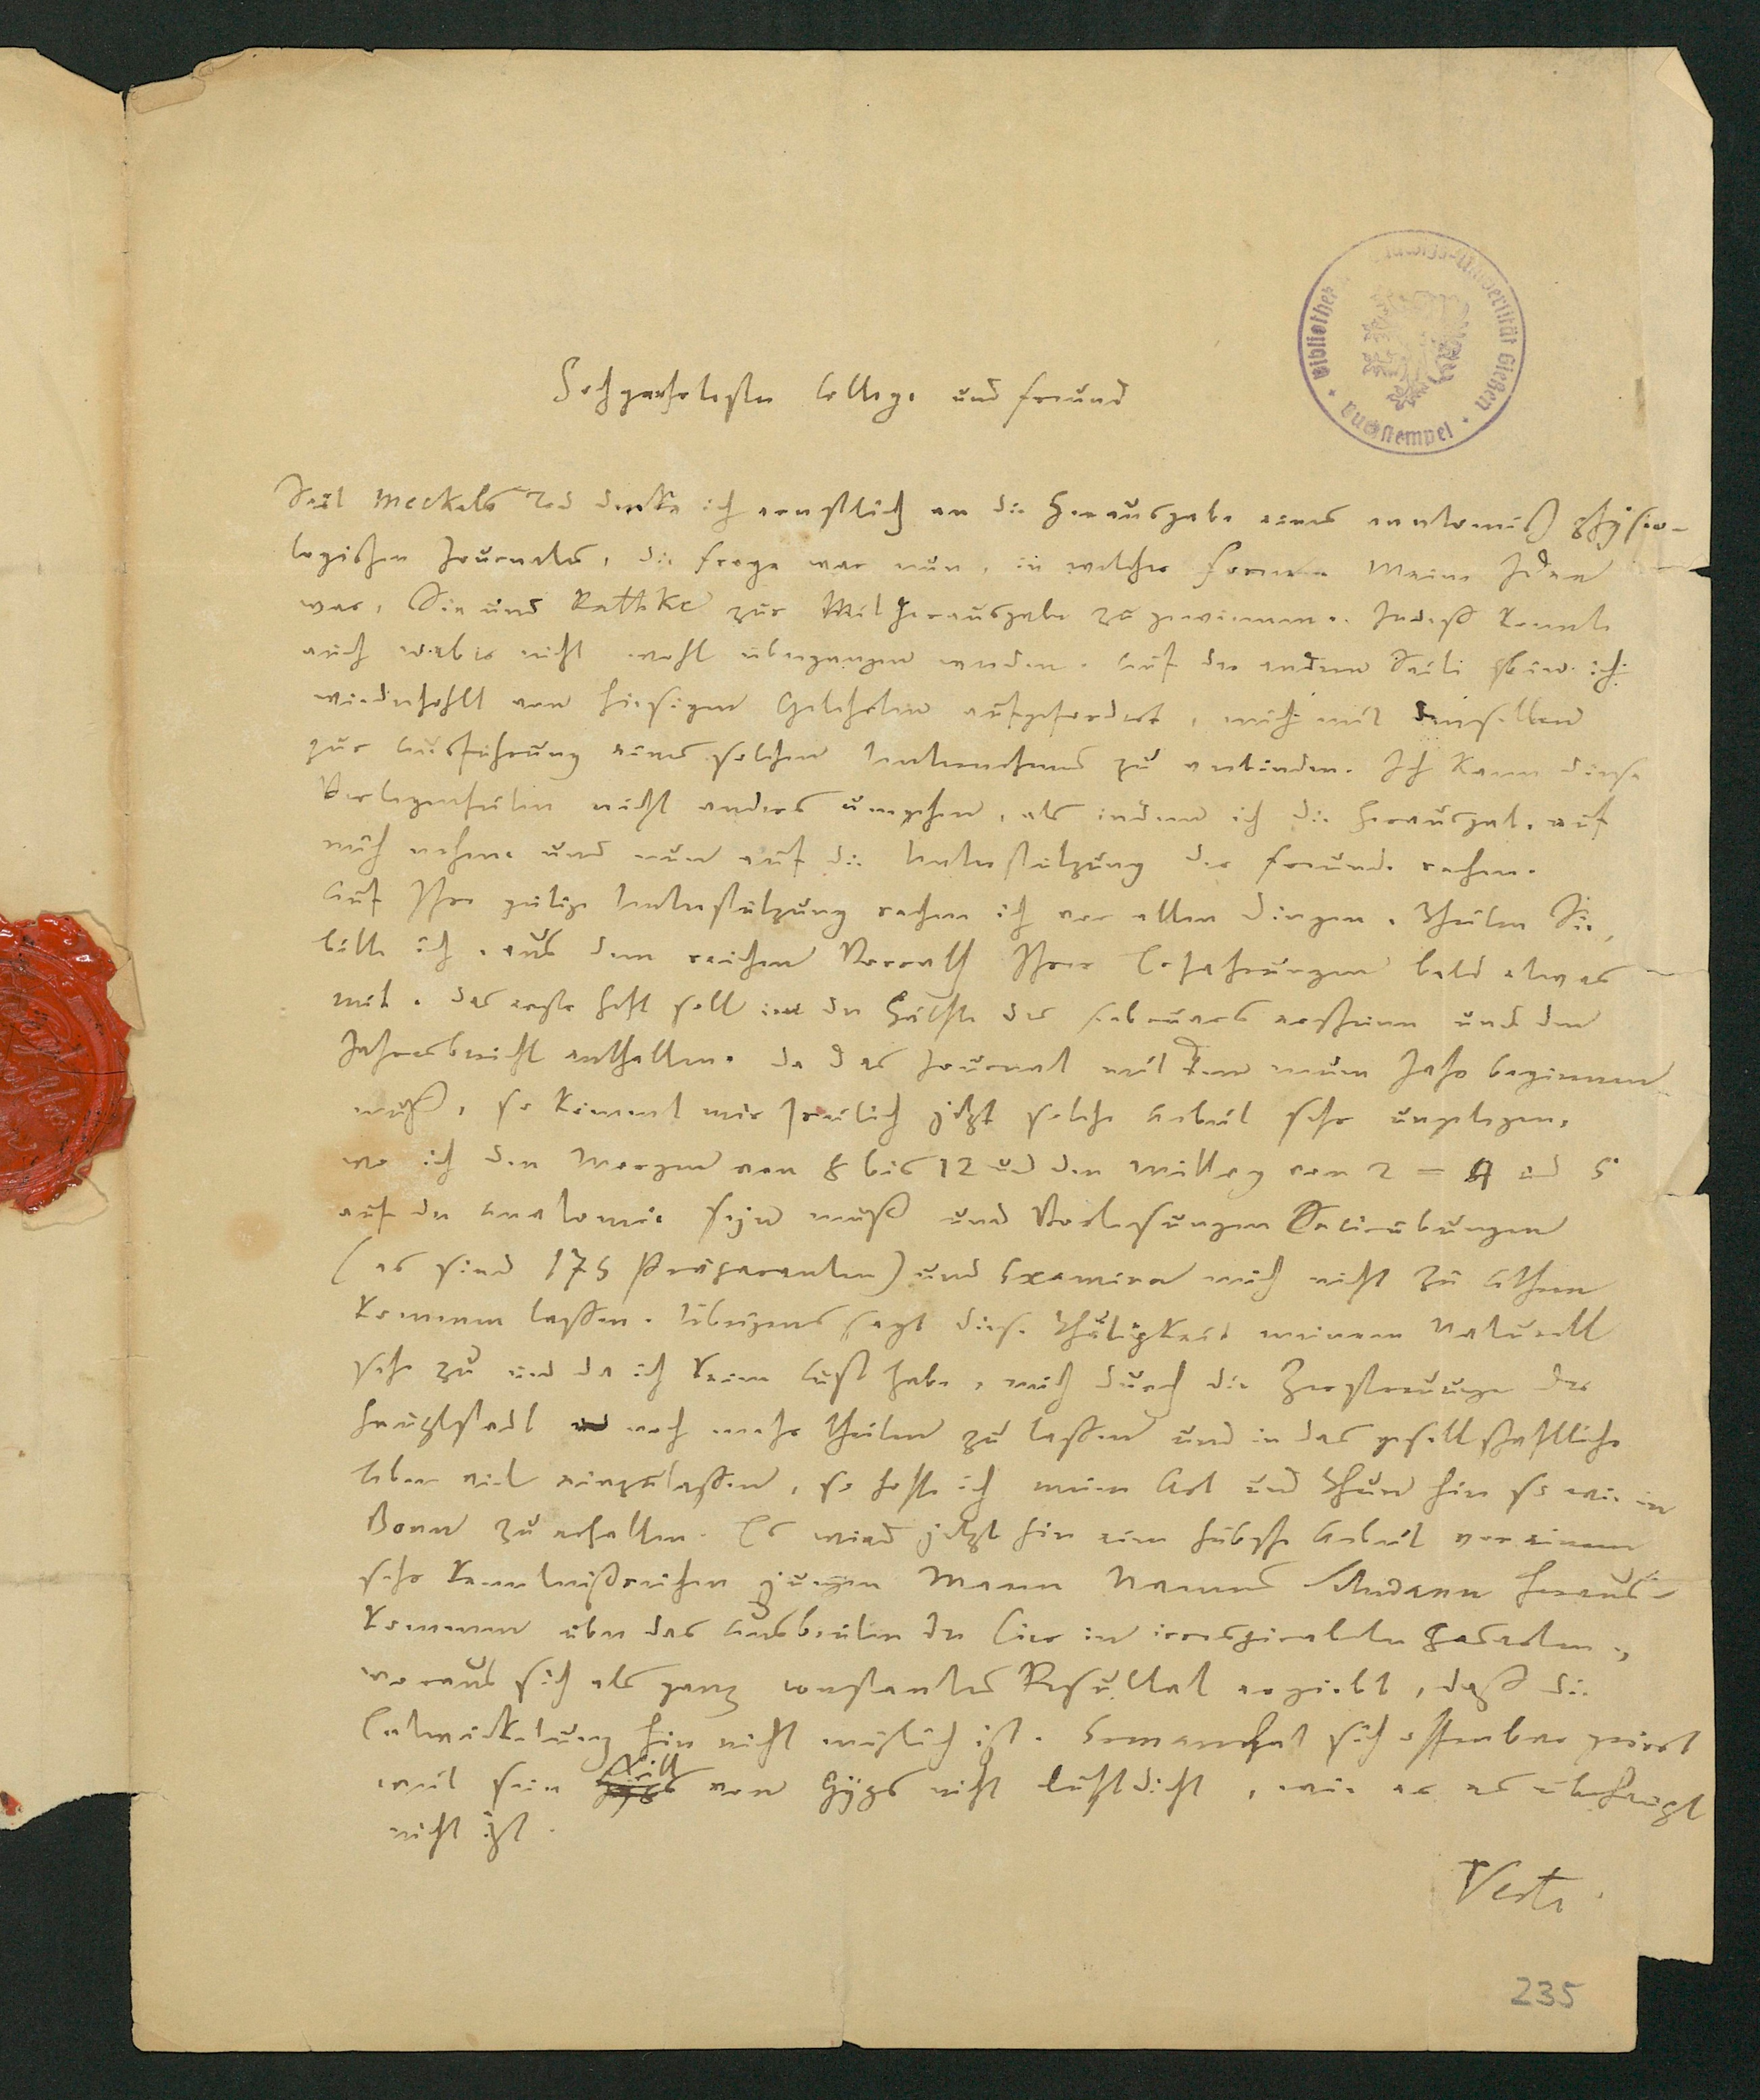 Bibliothek Ludwigs-Universität Gießen
Buchstempel
Hochgeehrtester College und Freund
Seit Meckels Tod denke ich ernstlich an die Herausgabe eines anatomisch physio-
logischen Journales, die Frage war nun, in welcher Form. Meine Idee
war, Sie und Rathke zur Mitherausgabe zu gewinnen. Indeß konnte
auch Weber nicht wohl übergangen werden. Auf der andern Seite bin ich
wiederhohlt von hiesigen Gelehrten aufgefordert, mich mit denselben
zur Ausführung eines solchen Unternehmens zu verbinden. Ich kann diese
Verlegenheiten nicht anders umgehen, als indem ich die Herausgabe auf
mich nehme und nun auf die Unterstützung der Freunde rechne.
Auf Ihre gütige Unterstützung rechne ich vor allen Dingen. Theilen Sie,
bitte ich, aus dem reichen Vorrath Ihrer Erfahrungen bald etwas
mit. Das erste Heft soll in der Hälfte des Februars erscheinen und den
Jahresbericht enthalten. Da das Journal mit dem neuen Jahr beginnen
muß, so kömmt mir freilich jetzt solche Arbeit sehr ungelegen,
wo ich den Morgen von 8 bis 12 und den Mittag von 2 – 4 und 5
auf der Anatomie seyn muß und Vorlesungen Secirübungen
(es sind 175 Präparanten) und Examina mich nicht zu Athem
kommen lassen. Uebrigens sagt diese Thätigkeit meinem Naturell
sehr zu und da ich keine Lust habe, mich durch die Zerstreuungen der
Hauptstadt noch mehr theilen zu lassen und in das gesellschaftliche
Leben viel einzulassen, so hoffe ich meine Art und Thun hier so wie in
Bonn zu erhalten. Es wird jetzt hier eine hübsche Arbeit von einem
sehr kenntnißreichen jungen Mann Namens Schwann heraus-
kommen über das Ausbrüten der Eier in irrespirabeln Gasarten,
woraus sich als ganz constantes Resultat ergiebt, daß die
Entwickelung hier nicht möglich ist. Erman hat sich offenbar geirrt
weil sein Kitt von Gyps nicht luftdicht, wie er es überhaupt
nicht ist.
Verte
235